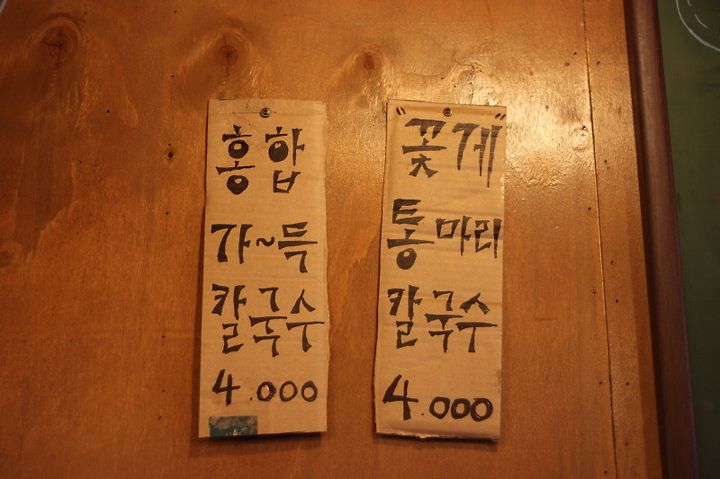 홍합
가~득
칼국수
4.000
"꽃게"
통마리
칼국수
4.000